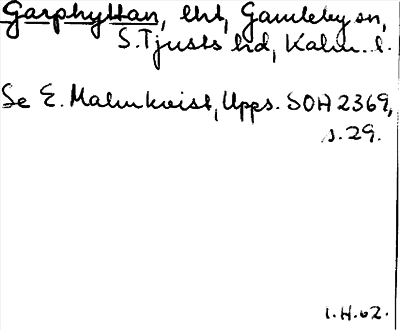 Garphyttan, lht, Gamleby sn,
S. Tjusts hd, Kalm. l.
Se E. Malmkvist, Upps. SOH 2369,
s. 29.
I.H.62.